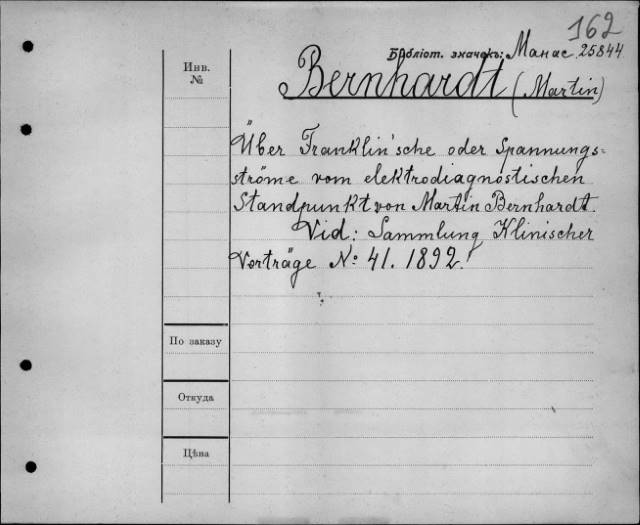 162
Библіот. значекъ: Манас. 25844.
Инв.
№
Bernhardt (Martin)
Über Franklin'sche oder Spannungs=
ströme vom elektrodiagnostischen
Standpunkt von Martin Bernhardt.
Vid: Sammlung Klinischer
Vorträge № 41. 1892.
По заказу
Откуда
Цѣна